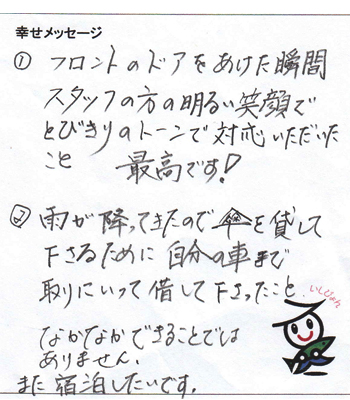 幸せメッセージ
① フロントのドアをあけた瞬間
スタッフの方の明るい笑顔で
とびきりのトーンで対応いただいた
こと 最高です!
② 雨が降ってきたので傘を貸して
下さるために自分の車まで
取りにいって借して下さったこと
なかなかできることでは
ありません。
また宿泊したいです。